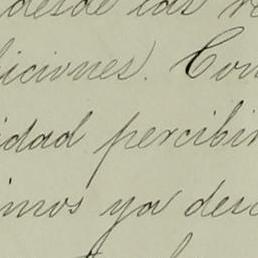 desde las re
iciones. Con
idad percibir
imos ya desc